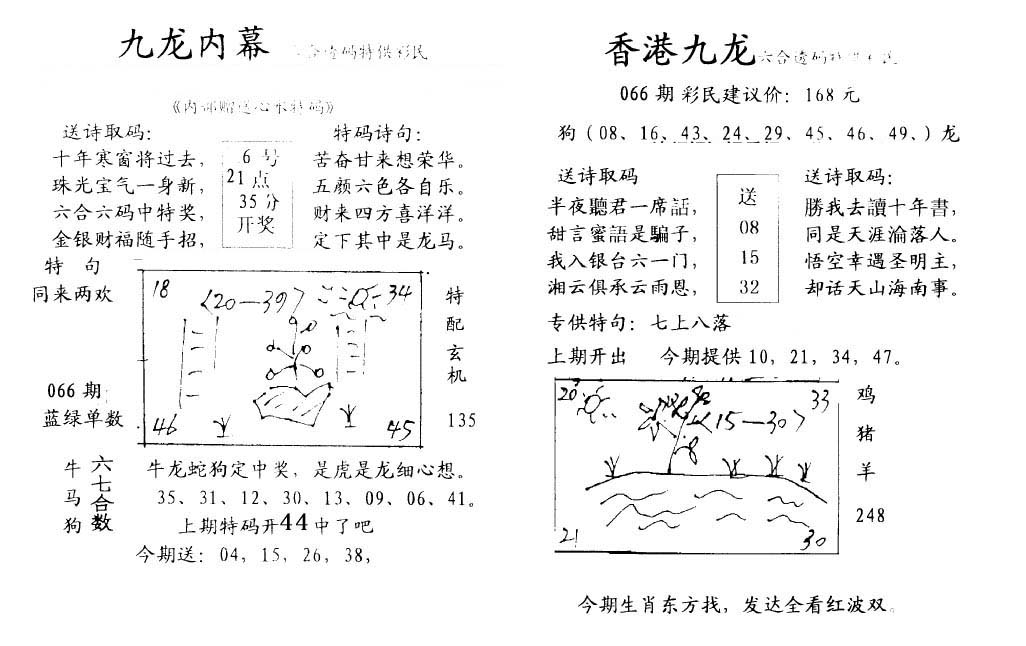 九龙内幕
合透码特供彩民
《内部赠送心水特码》
送诗取码：
十年寒窗将过去，
珠光宝气一身新，
六合六码中特奖，
金银财福随手招，
6 号
21 点
35 分
开奖
特码诗句：
苦奋甘来想荣华。
五颜六色各自乐。
财来四方喜洋洋。
定下其中是龙马。
特 句
同来两欢
066 期
蓝绿单数
18
〈20—39〉
34
46
45
特
配
玄
机
135
牛
马
狗
六七合数
牛龙蛇狗定中奖，是虎是龙细心想。
35、31、12、30、13、09、06、41。
上期特码开44中了吧
今期送：04，15，26，38，
香港九龙
六合透码特供彩民
066 期 彩民建议价：168 元
狗（08、16、43、24、29、45、46、49、）龙
送诗取码
半夜聽君一席話，
甜言蜜語是騙子，
我入银台六一门，
湘云俱承云雨恩，
送
08
15
32
送诗取码：
勝我去讀十年書，
同是天涯渝落人。
悟空幸遇圣明主，
却话天山海南事。
专供特句：七上八落
上期开出 今期提供 10，21，34，47。
20
33
〈15—30〉
21
30
鸡
猪
羊
248
今期生肖东方找，发达全看红波双。